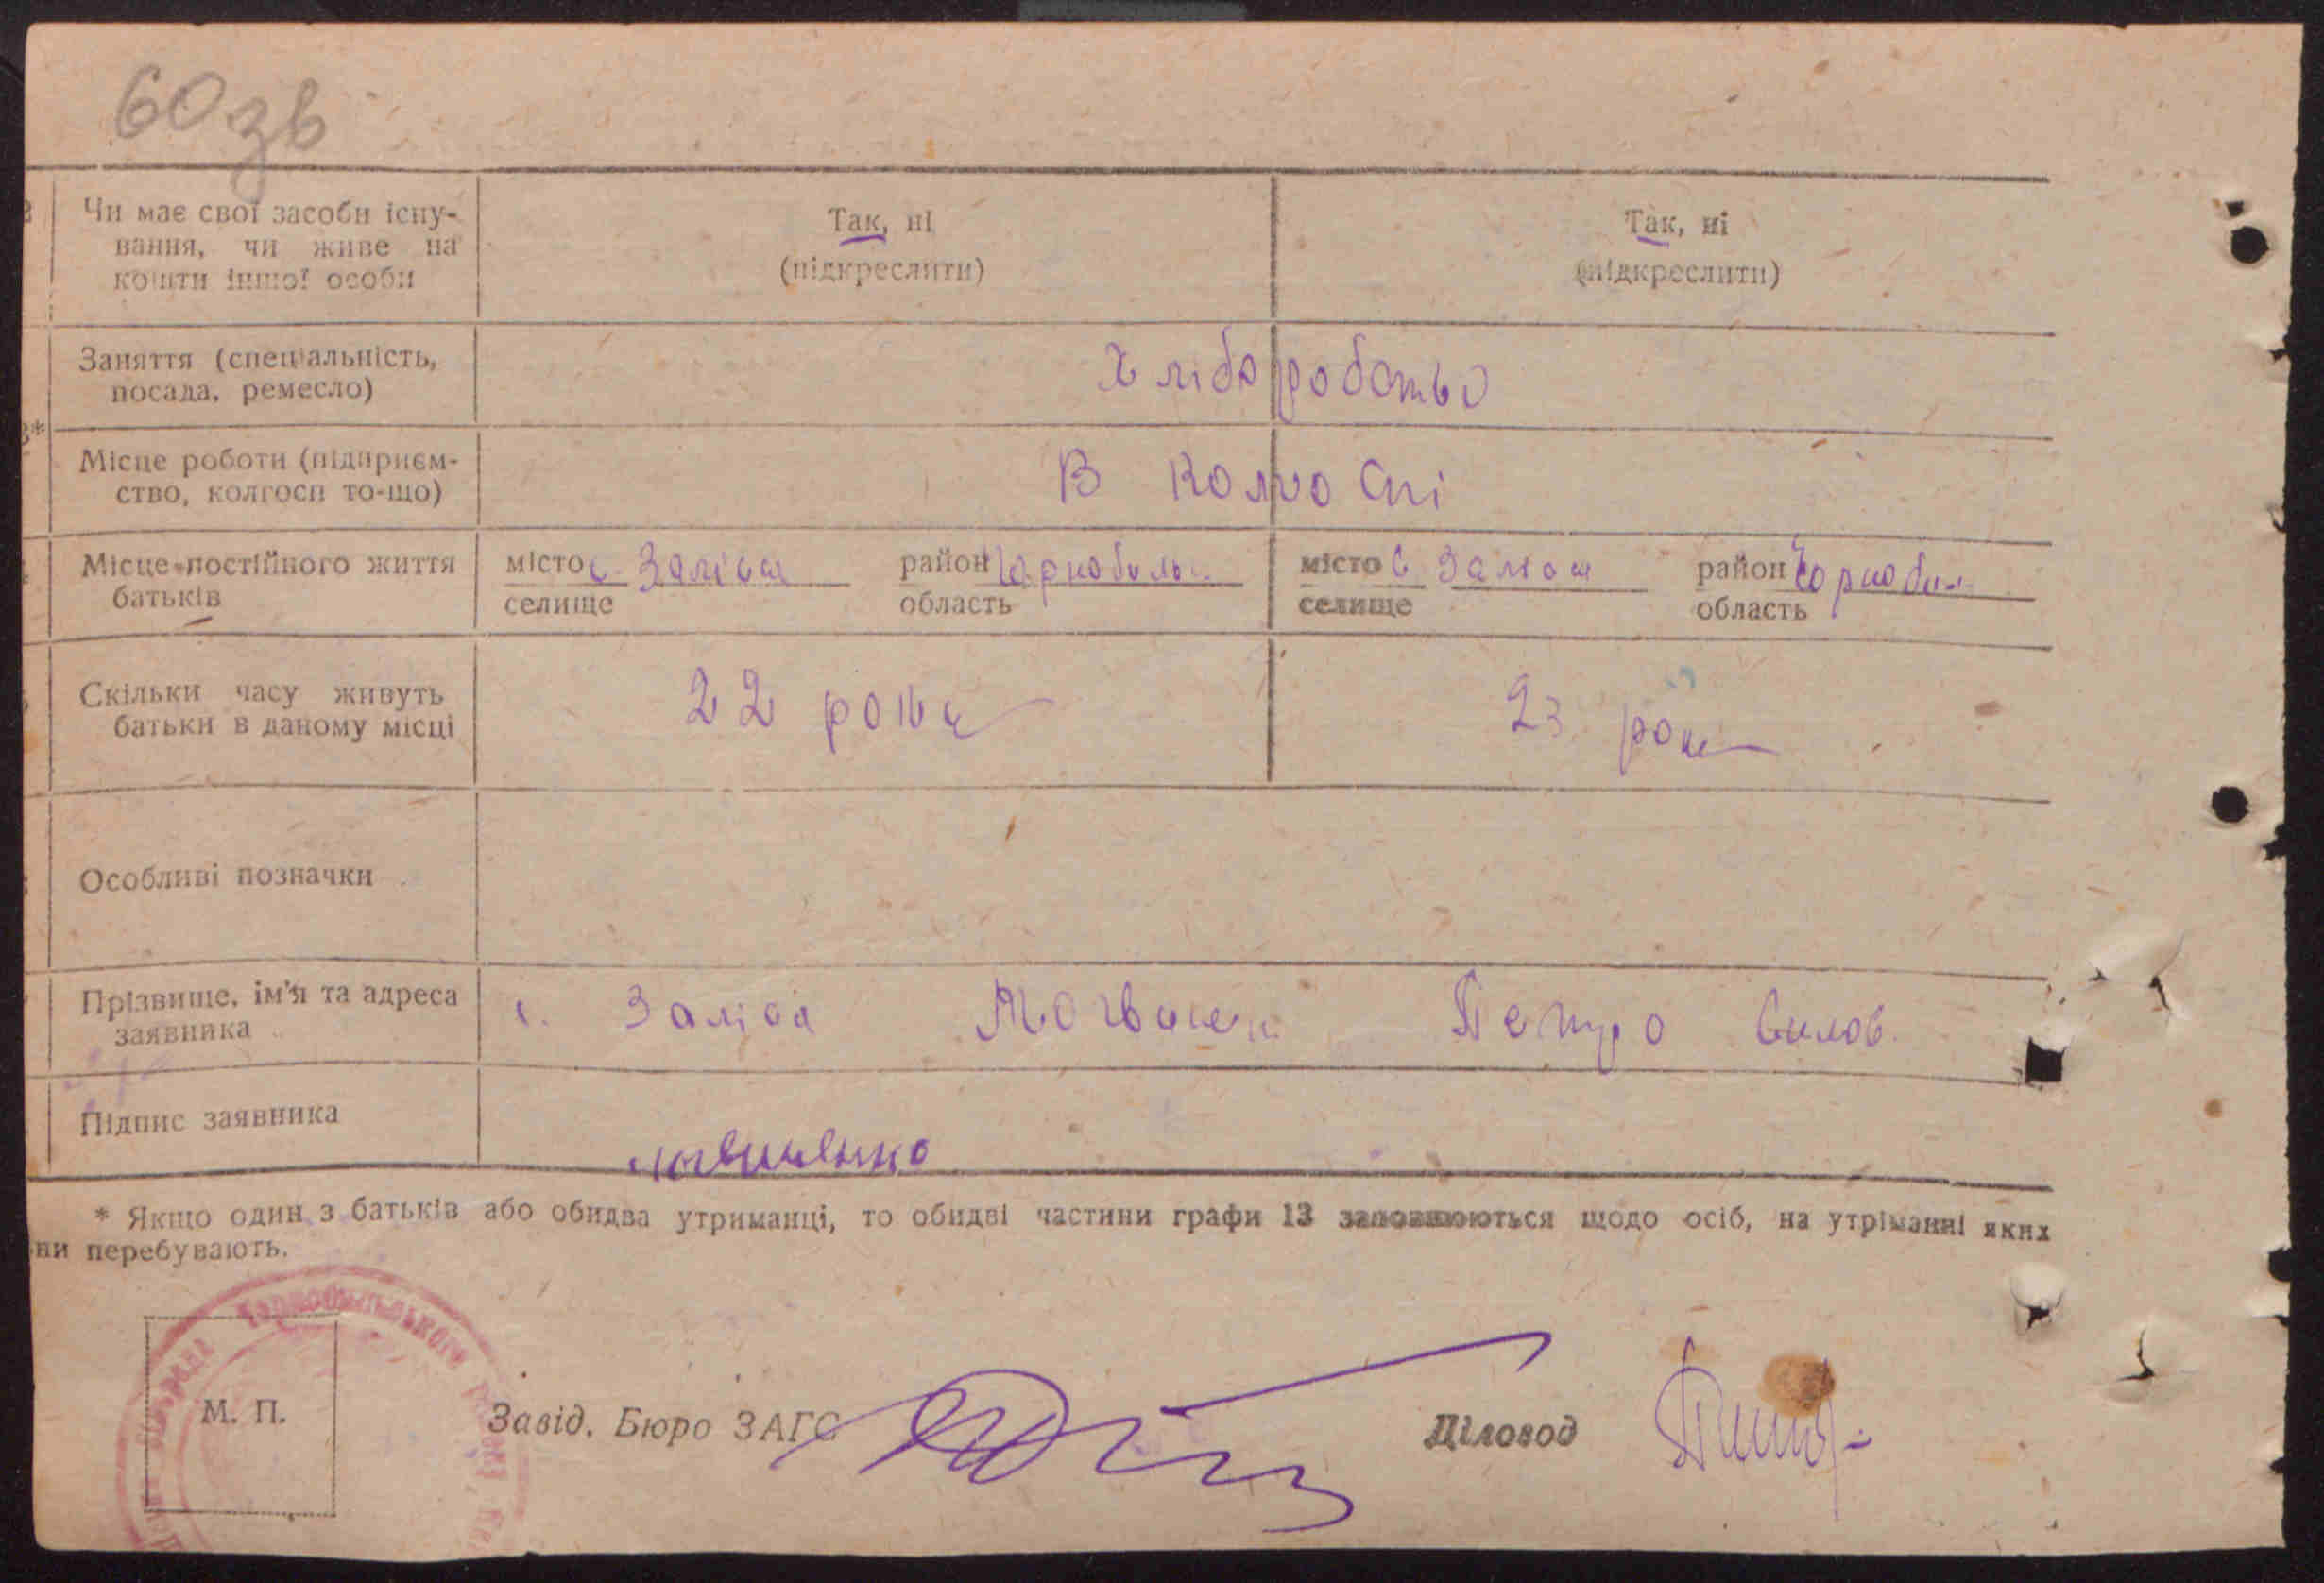 60 зв
Чи має свої засоби існу-
вання, чи живе на
кошти іншої особи
Так, ні
(підкреслити)
Так, ні
(підкреслити)
Заняття (спеціальність,
посада, ремесло)
Хліборобство
Місце роботи (підприєм-
ство, колгосп то-що)
В колгоспі
Місце постійного життя
батьків
місто с. Заліся
селище
район Чорнобиль
область
місто с Заліся
селище
район Чорнобил
область
Скільки часу живуть
батьки в даному місці
22 роки
23 роки
Особливі позначки
Прізвище, ім'я та адреса
заявника
с. Заліся Петро
Підпис заявника
* Якщо один з батьків або обидва утриманці, то обидві частини графи 13 заповнюються щодо осіб, на утріманні яких
ни перебувають.
Чорнобильського
М. П.
Завід. Бюро ЗАГС
Діловод